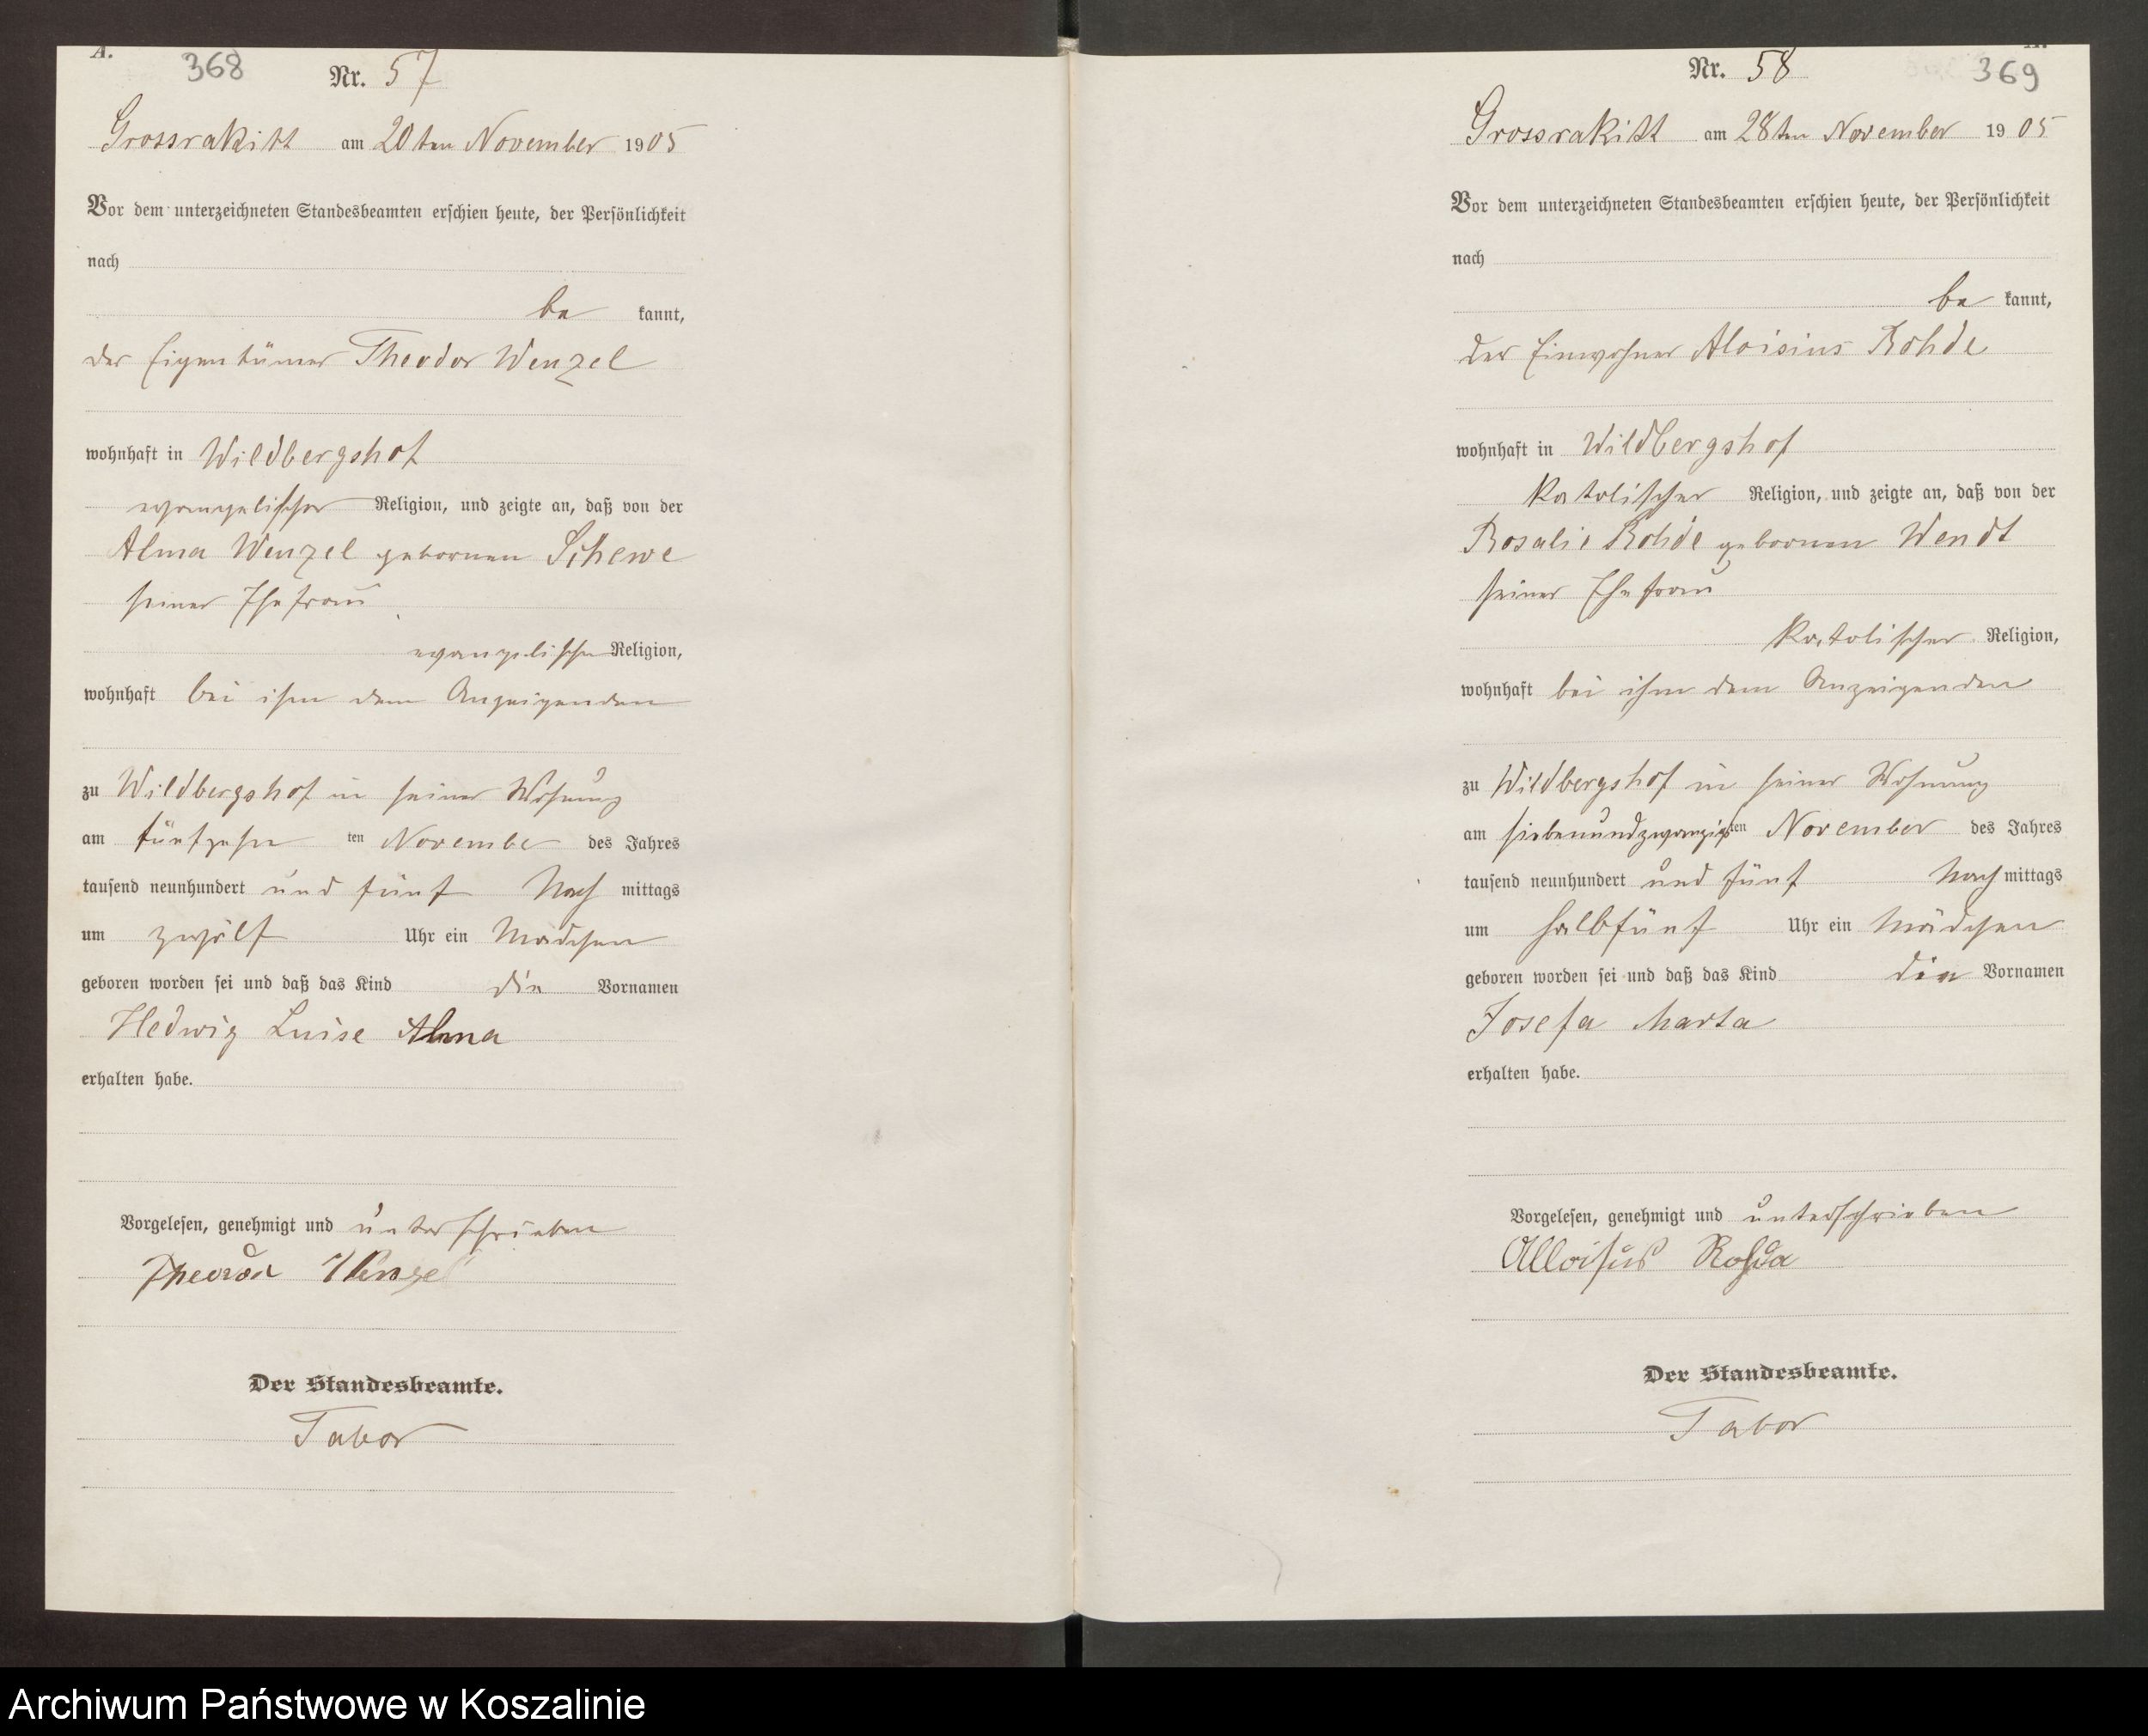 A.
368
Nr. 57
Grossrakitt am 20ten November 1905
Vor dem unterzeichneten Standesbeamten erschien heute, der Persönlichkeit
nach
be kannt,
der Eigentümer Theodor Wenzel
wohnhaft in Wildbergshof
evangelischer Religion, und zeigte an, daß von der
Alma Wenzel gebornen Schewe
seiner Ehefrau
evangelischer Religion,
wohnhaft bei ihm dem Anzeigenden
zu Wildbergshof in seiner Wohnung
am fünfzehn ten November des Jahres
tausend neunhundert und fünf Nach mittags
um zwölf Uhr ein Mädchen
geboren worden sei und daß das Kind die Vornamen
Hedwig Luise Alma
erhalten habe.
Vorgelesen, genehmigt und unterschrieben
Theodor Wenzel
Der Standesbeamte.
Tabor
Nr. 58
369
Grossrakitt am 28ten November 1905
Vor dem unterzeichneten Standesbeamten erschien heute, der Persönlichkeit
nach
be kannt,
der Einwohner Aloisius Rohde
wohnhaft in Wildbergshof
katolischer Religion, und zeigte an, daß von der
Rosalie Rohde gebornen Wendt
seiner Ehefrau
katolischer Religion,
wohnhaft bei ihm dem Anzeigenden
zu Wildbergshof in seiner Wohnung
am siebenundzwanzigsten November des Jahres
tausend neunhundert und fünf Nach mittags
um halbfünf Uhr ein Mädchen
geboren worden sei und daß das Kind die Vornamen
Josefa Marta
erhalten habe.
Vorgelesen, genehmigt und unterschrieben
Alloisus Rohda
Der Standesbeamte.
Tabor
Archiwum Państwowe w Koszalinie